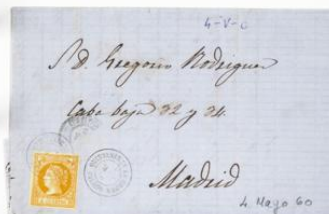 4-V-c
S. D. Gregorio Rodriguez
Caba baja 32 y 34.
Madrid
4 Mayo 60